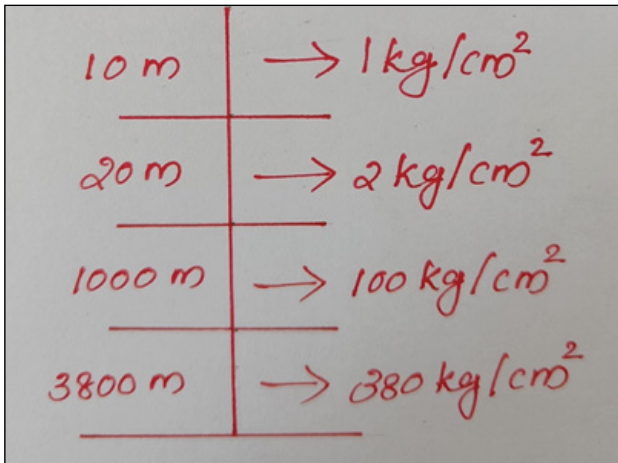 10 m → 1 kg/cm²
20 m → 2 kg/cm²
1000 m → 100 kg/cm²
3800 m → 380 kg/cm²